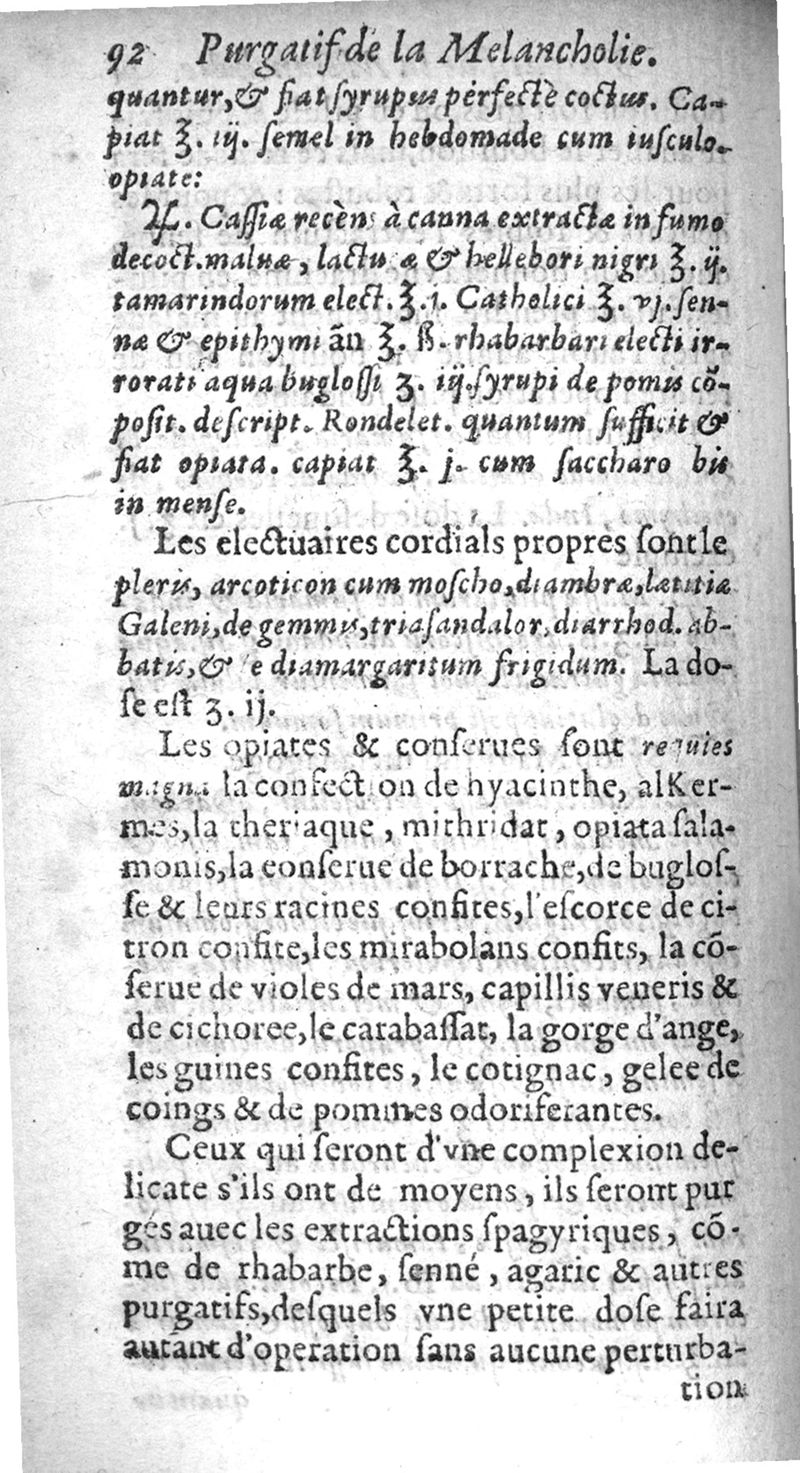 92 Purgatif de la Melancholie.
quantur, & fiat ſyrupus perfectè coctus. Ca-
piat ℥. iij. ſemel in hebdomade cum iuſculo.
opiate:
♃. Caſſiæ recèns à canna extractæ in fumo
decoct. maluæ, lactu æ & hellebori nigri ℥. ij.
tamarindorum elect. ℥. i. Catholici ℥. vj. ſen-
næ & epithymi ãn ℥. ß. rhabarbari electi ir-
rorati aqua bugloſſi ʒ. iij. ſyrupi de pomis cõ-
poſit. deſcript. Rondelet. quantum ſufficit &
fiat opiata. capiat ℥. j. cum ſaccharo bis
in menſe.
Les electuaires cordials propres ſont le
pleris, arcoticon cum moſcho, diambræ, lætitiæ
Galeni, de gemmis, triaſandalor, diarrhod. ab-
batis, & e diamargaritum frigidum. La do-
ſe eſt ʒ. ij.
Les opiates & conſerues ſont requies
magna la confect on de hyacinthe, alKer-
mes, la theriaque, mithridat, opiata ſala-
monis, la conſerue de borrache, de bugloſ-
ſe & leurs racines confites, l'eſcorce de ci-
tron confite, les mirabolans confits, la cõ-
ſerue de violes de mars, capillis veneris &
de cichoree, le carabaſſat, la gorge d'ange,
les guines confites, le cotignac, gelee de
coings & de pommes odoriferantes.
Ceux qui ſeront d'vne complexion de-
licate s'ils ont de moyens, ils ſeront pur
gés auec les extractions ſpagyriques, cõ-
me de rhabarbe, ſenné, agaric & autres
purgatifs, deſquels vne petite doſe faira
autant d'operation ſans aucune perturba-
tion